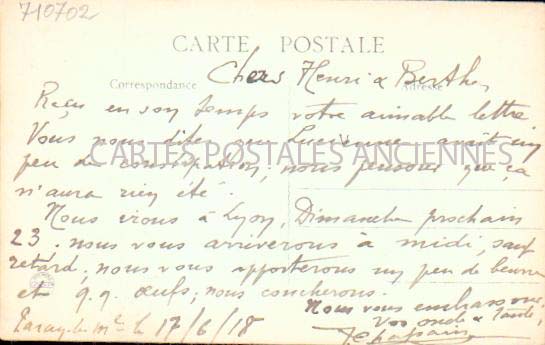 710702
CARTE POSTALE
Correspondance
Adresse
Chers Henri & Berthe,
Reçu en son temps votre aimable lettre
Vous nous dites que Lucienne avait un
peu de constipation, nous pensons que ça
n'aura rien été.
CARTES POSTALES ANCIENNES
Nous irons à Lyon, Dimanche prochain
23. nous vous arriverons à midi, sauf
retard, nous vous apporterons un peu de beurre
et q.q. œufs, nous coucherons.
Nous vous embrassons,
Vos oncle & tante,
Paray-le-Mal le 17/6/18